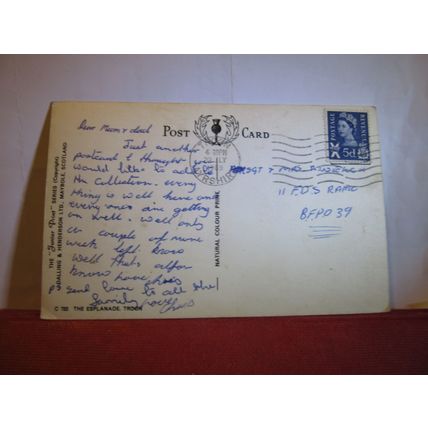 Dear Mum & dad
Just another
postcard I thought you
would like to add to
the collection. every
thing is well here and
every ones are getting
on well. Well only
a couple of more
week left
Well that's all for
know love
send love to all the
family love
POST CARD
THE "Junior Print" SERIES (Copyright)
& HENDERSON LTD., MAYBOLE, SCOTLAND
NATURAL COLOUR PRINT
C 702 THE ESPLANADE, TROON
POSTAGE
REVENUE
5d
SGT & MRS
11 F.D.S RAMC
BFPO 39